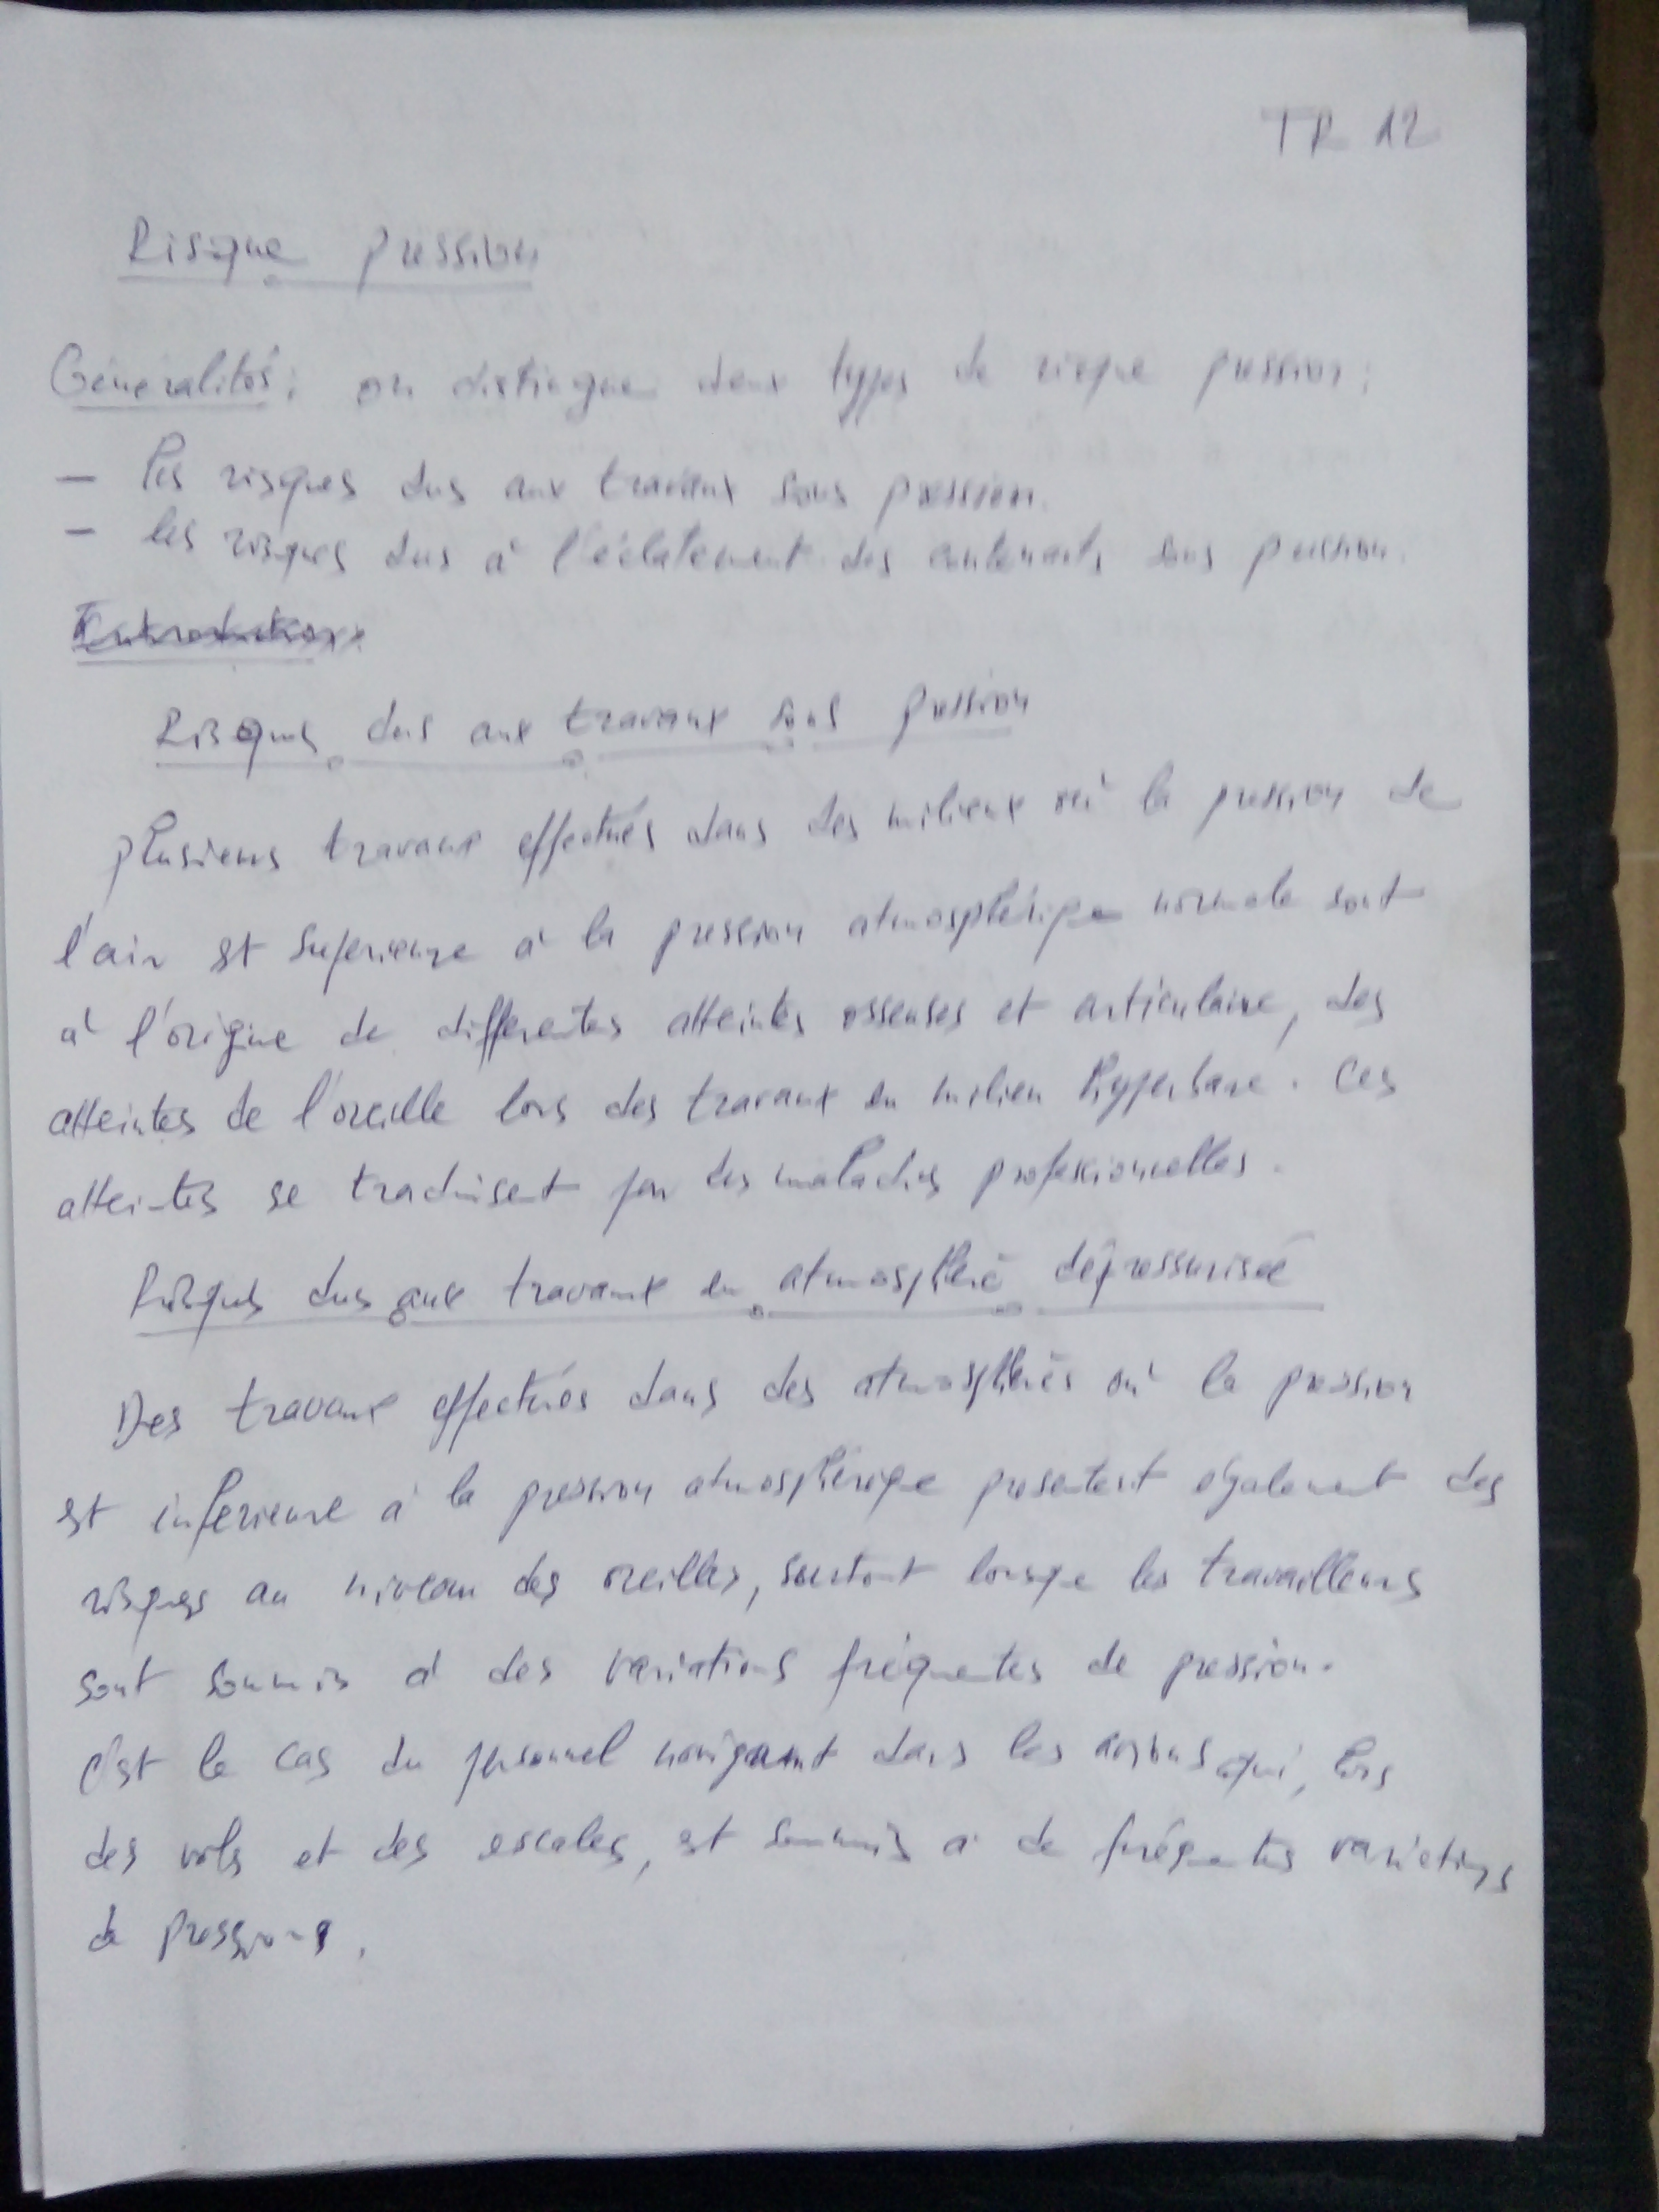 TR 12
Risque pression
Géneralités : on distingue deux types de risque pression :
— les risques dus aux travaux sous pression.
— les risques dus à l'éclatement des contenants sous pression.
Introduction
Risques dus aux travaux sous pression
plusieurs travaux effectués dans des milieux où la pression de
l'air est superieure à la pression atmosphérique normale sont
à l'origine de differentes atteintes osseuses et articulaire, des
atteintes de l'oreille lors des travaux en milieu hyperbare. Ces
atteintes se traduisent par des maladies professionnelles.
Risques dus aux travaux en atmosphère dépressurisée
Des travaux effectués dans des atmosphères où la pression
est inferieure à la pression atmosphérique presentent également des
risques au niveau des oreilles, surtout lorsque les travailleurs
sont soumis à des variations fréquentes de pression.
C'est le cas du personnel navigant dans les avions qui, lors
des vols et des escales, est soumis à de fréquentes variations
de pressions.